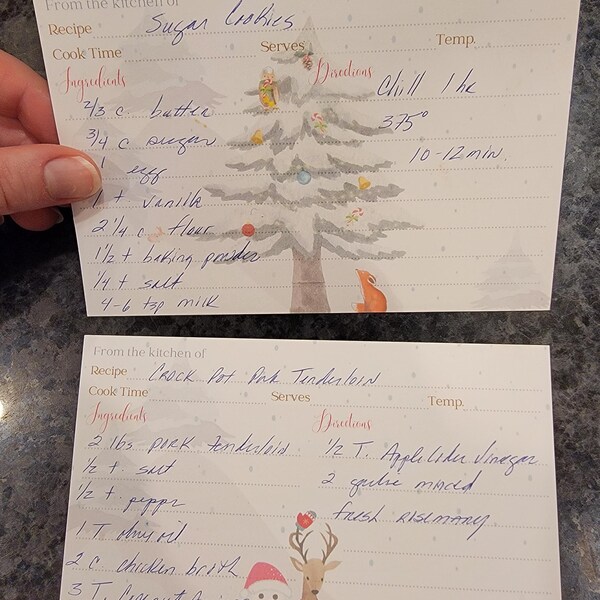 From the kitchen of
Recipe Sugar Cookies
Cook Time Serves Temp.
Ingredients Directions
2/3 c butter Chill 1 hr
3/4 c sugar 375°
1 egg 10-12 min.
1 t vanilla
2 1/4 c flour
1 1/2 t baking powder
1/4 t salt
4-6 tsp milk
From the kitchen of
Recipe Crock Pot Pork Tenderloin
Cook Time Serves Temp.
Ingredients Directions
2 lbs pork tenderloin 1/2 T. Apple Cider Vinegar
1/2 t salt 2 minced
1/2 t. pepper fresh rosemary
1 T olive oil
2 c chicken broth
3 T.